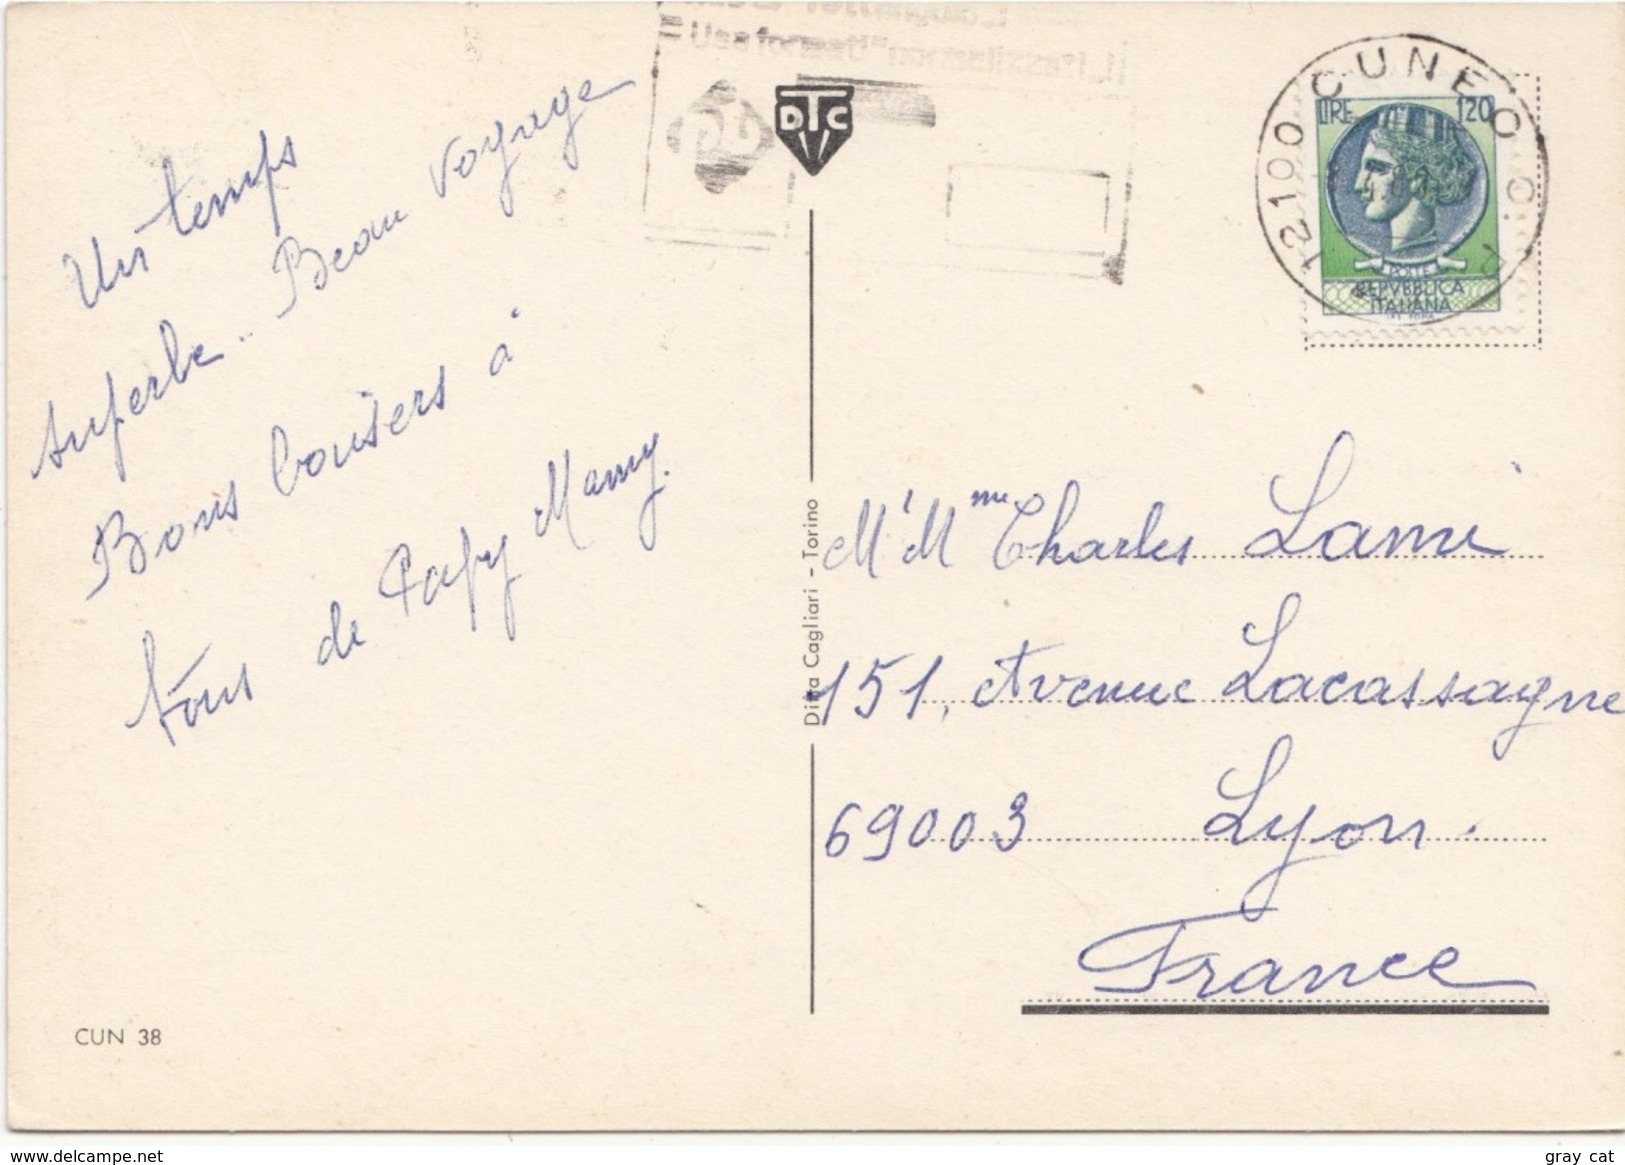 Un temps
superbe.. Beau voyage
Bons baisers à
tous de Papy Mamy.
DTC
Ditta Cagliari - Torino
12100 CUNEO C.P.
LIRE 120
POSTE
REPVBBLICA
ITALIANA
M' Mme Charles Lami
151, Avenue Lacassagne
69003 Lyon.
France
CUN 38
www.delcampe.net
gray cat